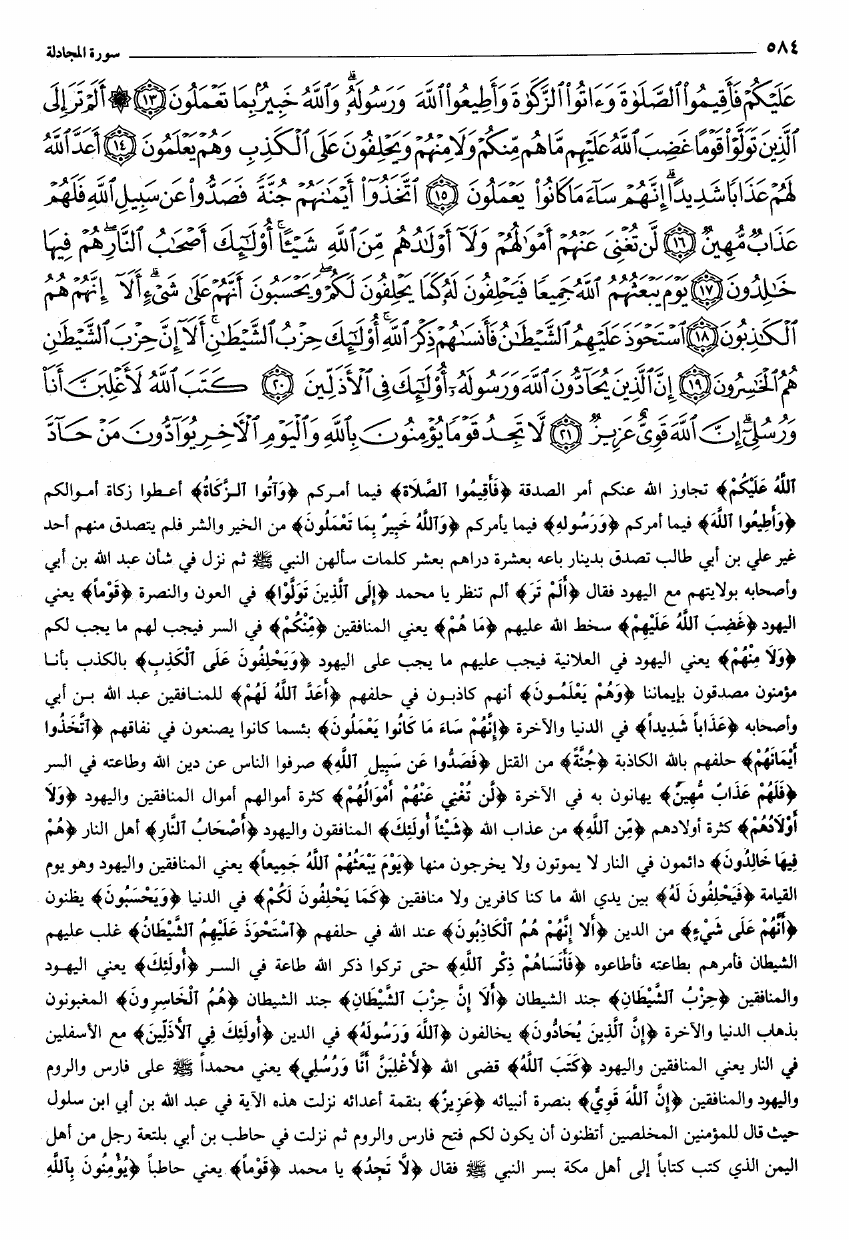 ٥٨٤ سورة المجادلة
عَلَيْكُمْ فَأَقِيمُوا۟ ٱلصَّلَوٰةَ وَءَاتُوا۟ ٱلزَّكَوٰةَ وَأَطِيعُوا۟ ٱللَّهَ وَرَسُولَهُۥ ۚ وَٱللَّهُ خَبِيرٌۢ بِمَا تَعْمَلُونَ ﴿١٣﴾ ۞ أَلَمْ تَرَ إِلَى
ٱلَّذِينَ تَوَلَّوْا۟ قَوْمًا غَضِبَ ٱللَّهُ عَلَيْهِم مَّا هُم مِّنكُمْ وَلَا مِنْهُمْ وَيَحْلِفُونَ عَلَى ٱلْكَذِبِ وَهُمْ يَعْلَمُونَ ﴿١٤﴾ أَعَدَّ ٱللَّهُ
لَهُمْ عَذَابًا شَدِيدًا ۖ إِنَّهُمْ سَآءَ مَا كَانُوا۟ يَعْمَلُونَ ﴿١٥﴾ ٱتَّخَذُوٓا۟ أَيْمَٰنَهُمْ جُنَّةً فَصَدُّوا۟ عَن سَبِيلِ ٱللَّهِ فَلَهُمْ
عَذَابٌ مُّهِينٌ ﴿١٦﴾ لَّن تُغْنِىَ عَنْهُمْ أَمْوَٰلُهُمْ وَلَآ أَوْلَٰدُهُم مِّنَ ٱللَّهِ شَيْـًٔا ۚ أُو۟لَٰٓئِكَ أَصْحَٰبُ ٱلنَّارِ ۖ هُمْ فِيهَا
خَٰلِدُونَ ﴿١٧﴾ يَوْمَ يَبْعَثُهُمُ ٱللَّهُ جَمِيعًا فَيَحْلِفُونَ لَهُۥ كَمَا يَحْلِفُونَ لَكُمْ ۖ وَيَحْسَبُونَ أَنَّهُمْ عَلَىٰ شَىْءٍ ۚ أَلَآ إِنَّهُمْ هُمُ
ٱلْكَٰذِبُونَ ﴿١٨﴾ ٱسْتَحْوَذَ عَلَيْهِمُ ٱلشَّيْطَٰنُ فَأَنسَىٰهُمْ ذِكْرَ ٱللَّهِ ۚ أُو۟لَٰٓئِكَ حِزْبُ ٱلشَّيْطَٰنِ ۚ أَلَآ إِنَّ حِزْبَ ٱلشَّيْطَٰنِ
هُمُ ٱلْخَٰسِرُونَ ﴿١٩﴾ إِنَّ ٱلَّذِينَ يُحَآدُّونَ ٱللَّهَ وَرَسُولَهُۥٓ أُو۟لَٰٓئِكَ فِى ٱلْأَذَلِّينَ ﴿٢٠﴾ كَتَبَ ٱللَّهُ لَأَغْلِبَنَّ أَنَا۠
وَرُسُلِىٓ ۚ إِنَّ ٱللَّهَ قَوِىٌّ عَزِيزٌ ﴿٢١﴾ لَّا تَجِدُ قَوْمًا يُؤْمِنُونَ بِٱللَّهِ وَٱلْيَوْمِ ٱلْءَاخِرِ يُوَآدُّونَ مَنْ حَآدَّ
اللَّهُ عَلَيْكُمْ﴾ تجاوز الله عنكم أمر الصدقة ﴿فَأَقِيمُوا الصَّلَاةَ﴾ فيما أمركم ﴿وَآتُوا الزَّكَاةَ﴾ أعطوا زكاة أموالكم
﴿وَأَطِيعُوا اللَّهَ﴾ فيما أمركم ﴿وَرَسُولَهُ﴾ فيما يأمركم ﴿وَاللَّهُ خَبِيرٌ بِمَا تَعْمَلُونَ﴾ من الخير والشر فلم يتصدق منهم أحد
غير علي بن أبي طالب تصدق بدينار باعه بعشرة دراهم بعشر كلمات سألهن النبي ﷺ ثم نزل في شأن عبد الله بن أبي
وأصحابه بولايتهم مع اليهود فقال ﴿أَلَمْ تَرَ﴾ ألم تنظر يا محمد ﴿إِلَى الَّذِينَ تَوَلَّوْا﴾ في العون والنصرة ﴿قَوْماً﴾ يعني
اليهود ﴿غَضِبَ اللَّهُ عَلَيْهِمْ﴾ سخط الله عليهم ﴿مَا هُمْ﴾ يعني المنافقين ﴿مِّنْكُمْ﴾ في السر فيجب لهم ما يجب لكم
﴿وَلَا مِنْهُمْ﴾ يعني اليهود في العلانية فيجب عليهم ما يجب على اليهود ﴿وَيَحْلِفُونَ عَلَى الْكَذِبِ﴾ بالكذب بأنا
مؤمنون مصدقون بإيماننا ﴿وَهُمْ يَعْلَمُونَ﴾ أنهم كاذبون في حلفهم ﴿أَعَدَّ اللَّهُ لَهُمْ﴾ للمنافقين عبد الله بن أبي
وأصحابه ﴿عَذَاباً شَدِيداً﴾ في الدنيا والآخرة ﴿إِنَّهُمْ سَاءَ مَا كَانُوا يَعْمَلُونَ﴾ بئسما كانوا يصنعون في نفاقهم ﴿اتَّخَذُوا
أَيْمَانَهُمْ﴾ حلفهم بالله الكاذبة ﴿جُنَّةً﴾ من القتل ﴿فَصَدُّوا عَن سَبِيلِ اللَّهِ﴾ صرفوا الناس عن دين الله وطاعته في السر
﴿فَلَهُمْ عَذَابٌ مُّهِينٌ﴾ يهانون به في الآخرة ﴿لَن تُغْنِي عَنْهُمْ أَمْوَالُهُمْ﴾ كثرة أموالهم أموال المنافقين واليهود ﴿وَلَا
أَوْلَادُهُمْ﴾ كثرة أولادهم ﴿مِّنَ اللَّهِ﴾ من عذاب الله ﴿شَيْئاً أُولَئِكَ﴾ المنافقون واليهود ﴿أَصْحَابُ النَّارِ﴾ أهل النار ﴿هُمْ
فِيهَا خَالِدُونَ﴾ دائمون في النار لا يموتون ولا يخرجون منها ﴿يَوْمَ يَبْعَثُهُمْ اللَّهُ جَمِيعاً﴾ يعني المنافقين واليهود وهو يوم
القيامة ﴿فَيَحْلِفُونَ لَهُ﴾ بين يدي الله ما كنا كافرين ولا منافقين ﴿كَمَا يَحْلِفُونَ لَكُمْ﴾ في الدنيا ﴿وَيَحْسَبُونَ﴾ يظنون
﴿أَنَّهُمْ عَلَى شَيْءٍ﴾ من الدين ﴿أَلَا إِنَّهُمْ هُمُ الْكَاذِبُونَ﴾ عند الله في حلفهم ﴿اسْتَحْوَذَ عَلَيْهِمُ الشَّيْطَانُ﴾ غلب عليهم
الشيطان فأمرهم بطاعته فأطاعوه ﴿فَأَنسَاهُمْ ذِكْرَ اللَّهِ﴾ حتى تركوا ذكر الله طاعة في السر ﴿أُولَئِكَ﴾ يعني اليهود
والمنافقين ﴿حِزْبُ الشَّيْطَانِ﴾ جند الشيطان ﴿أَلَا إِنَّ حِزْبَ الشَّيْطَانِ﴾ جند الشيطان ﴿هُمُ الْخَاسِرُونَ﴾ المغبونون
بذهاب الدنيا والآخرة ﴿إِنَّ الَّذِينَ يُحَادُّونَ﴾ يخالفون ﴿اللَّهَ وَرَسُولَهُ﴾ في الدين ﴿أُولَئِكَ فِي الْأَذَلِّينَ﴾ مع الأسفلين
في النار يعني المنافقين واليهود ﴿كَتَبَ اللَّهُ﴾ قضى الله ﴿لَأَغْلِبَنَّ أَنَا وَرُسُلِي﴾ يعني محمداً ﷺ على فارس والروم
واليهود والمنافقين ﴿إِنَّ اللَّهَ قَوِيٌّ﴾ بنصرة أنبيائه ﴿عَزِيزٌ﴾ بنقمة أعدائه نزلت هذه الآية في عبد الله بن أبي ابن سلول
حيث قال للمؤمنين المخلصين أتظنون أن يكون لكم فتح فارس والروم ثم نزلت في حاطب بن أبي بلتعة رجل من أهل
اليمن الذي كتب كتاباً إلى أهل مكة بسر النبي ﷺ فقال ﴿لَّا تَجِدُ﴾ يا محمد ﴿قَوْماً﴾ يعني حاطباً ﴿يُؤْمِنُونَ بِاللَّهِ